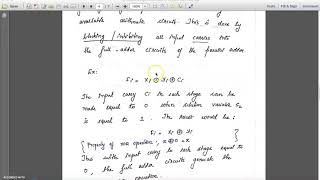 available arithmetic circuit. This is done by
blocking / inhibiting all input carries into
the full-adder circuits of the parallel adder.
Ex:
Fi = Xi ⊕ Yi ⊕ Ci
The input carry Ci to each stage can be
made equal to 0 when select variable S2
is equal to 1. The result would be:
Fi = Xi ⊕ Yi
{ Property of XOR operation: x ⊕ 0 = x }
This with input carry to each stage equal to
0, the full adder circuits generate the
operation.